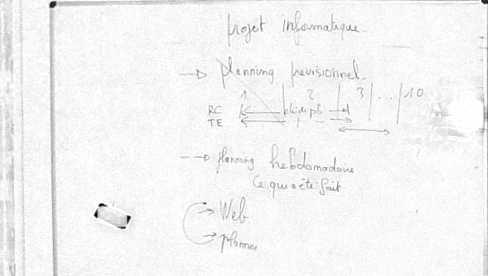 projet informatique.
→ planning previsionnel.
1 2 3 ... 10
RC
TE
→ planning hebdomadaire
Ce qui a été fait
→ Web
→ planner